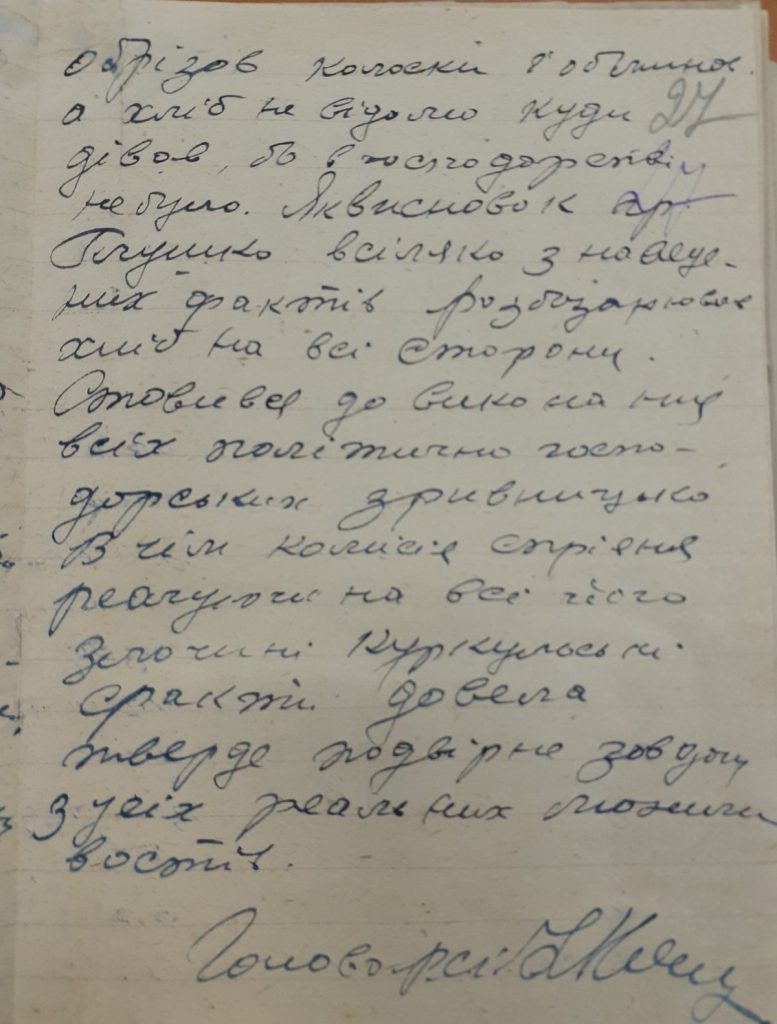 обрізов колоски і обчина
а хліб не відомо куди 27
дівов, бо в господорстві
небуло. Яквисновок гр.
Глушко всіляко з наведе-
них фактів розбазарював
хліб на всі сторони.
Стовився до виконання
всіх політично госпо-
дорських зривницько
В чім комісія сприяня
реагуючи на всі його
злочині куркульські
факти довела
тверде подвірне зовдону
з усіх реальних можли
востів.
Голова рсі